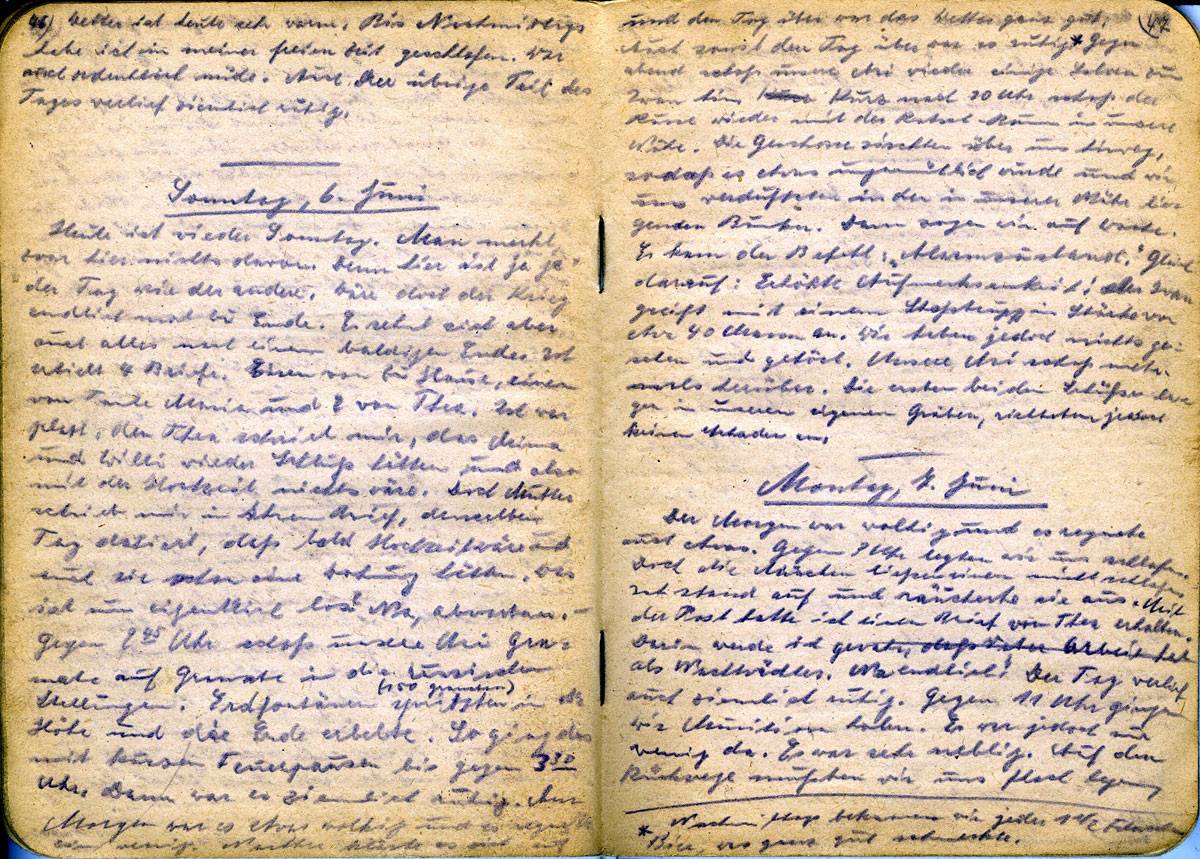 46) Wetter ist heute sehr warm. Bis Nachmittags
habe ich in meiner freien Zeit geschlafen. War
auch ordentlich müde. Auch der übrige Teil des
Tages verlief ziemlich ruhig.
Sonntag, 6. Juni
Heute ist wieder Sonntag. Man merkt
zwar hier nichts davon. Denn hier ist ja je-
der Tag wie der andere. Wäre doch der Krieg
endlich mal zu Ende. Es sehnt sich aber
auch alles nach einem baldigen Ende. Ich
erhielt 4 Briefe. Einen von zu Hause, einen
von Tante Maria und 2 von Thea. Ich war
platt, den Thea schrieb mir, das
und Willi wieder Schluß hätten und also
mit der Hochzeit nichts wäre. Doch Mutter
schrieb mir in ihrem Brief, denselben
Tag datiert, daß bald Hochzeit wäre und
und sie schon eine hätten. Was
ist nun eigentlich los? Na, abwarten.
Gegen 2 45 Uhr schoß unsere Ari Gra-
nate auf Granate in die russischen
Stellungen. (100 Granaten) Erdfontänen spritzten in die
Höhe und die Erde erbebte. So ging das
mit kurzen Feuerpausen bis gegen 3 30
Uhr. Dann war es ziemlich ruhig. Am
Morgen war es etwas wolkig und es regnete
ein wenig. klärte es sich auf
47
und den Tag über war das Wetter ganz gut.
Auch sonst den Tag über war es ruhig * Gegen
abend schoß unsere Ari wieder einige Salven zum
Iwan hin. Kurz nach 20 Uhr schoß der
Russe wieder mit der Ratsch-Bum in unsere
Nähe. Die Geschosse zischten über uns hinweg,
sodaß es etwas ungemütlich wurde und wir
uns verdufteten in den in unserer Nähe lie-
genden Bunker. Dann zogen wir auf Wache.
Es kam der Befehl: „Alarmzustand." Gleich
darauf: Erhöhte Aufmerksamkeit! Der Iwan
greift mit einem Stoßtrupp in Stärke von
etwa 40 Mann an. Wir haben jedoch nichts ge-
sehen und gehört. Unsere Ari schoß mehr-
mals herüber. Die ersten beiden Schüsse la-
gen in unseren eigenen Gräben, richteten jedoch
keinen Schaden an.
Montag, 7. Juni
Der Morgen war wolkig und es regnete
auch etwas. Gegen 7 Uhr legten wir uns schlafen.
Doch die ließen einen nicht schlafen
Ich stand auf und räucherte sie aus. Mit
der Post hatte ich einen Brief von Thea erhalten.
Darin werde ich
als Na endlich! Der Tag verlief
auch ziemlich ruhig. Gegen 11 Uhr gingen
wir Munition holen. Es war jedoch nur
wenig da. Es war sehr neblig. Auf dem
Rückwege mußten wir uns flach legen
* Nachmittags bekamen wir jeder 1 1/2 Flaschen
Bier, was ganz gut schmeckte.